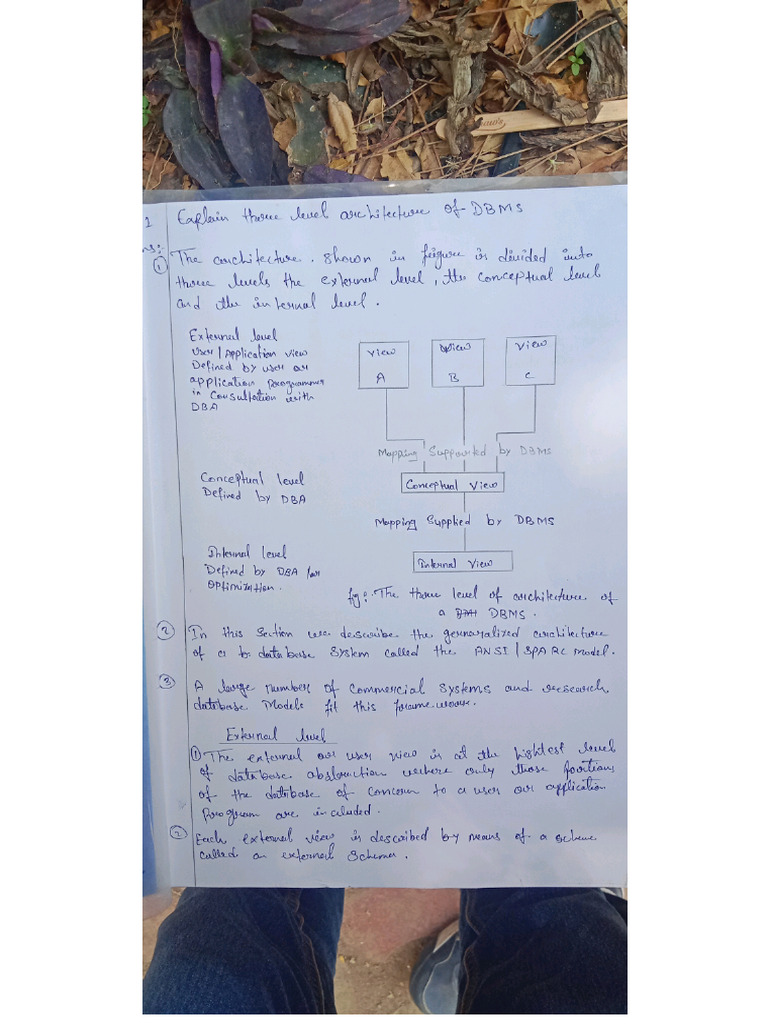 1 Explain three level architecture of DBMS
ns:
① The architecture. Shown in feigure is divided into
three levels the external level, the conceptual level
and the internal level.
External level
User/Application view
Defined by user or
application programmer
in Consultation with
DBA
View
A
View
B
View
C
Mapping Supported by DBMS
Conceptual level
Defined by DBA
Conceptual View
Mapping Supplied by DBMS
Internal level
Defined by DBA for
optimization.
Internal View
fig:- The three level of architecture of
a DBMS.
② In this Section we describe the genaralized architecture
of a database System called the ANSI/SPARC model.
③ A large number of commercial systems and research
database Models fit this framework.
External level
① The external or user view is at the hightest level
of database abstraction where only those portions
of the database of concern to a user or application
Program are included.
② Each external view is described by means of a scheme
called an external schema.